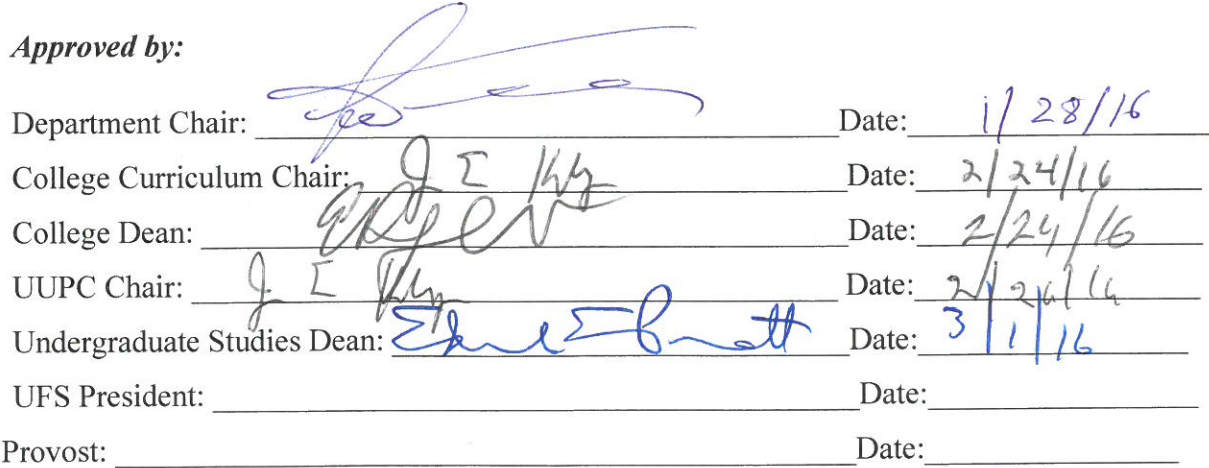 Approved by:
Department Chair: Date: 1/28/16
College Curriculum Chair: J E Date: 2/24/16
College Dean: Date: 2/24/16
UUPC Chair: J E Date: 2/
Undergraduate Studies Dean: Date: 3/1/16
UFS President: Date:
Provost: Date: